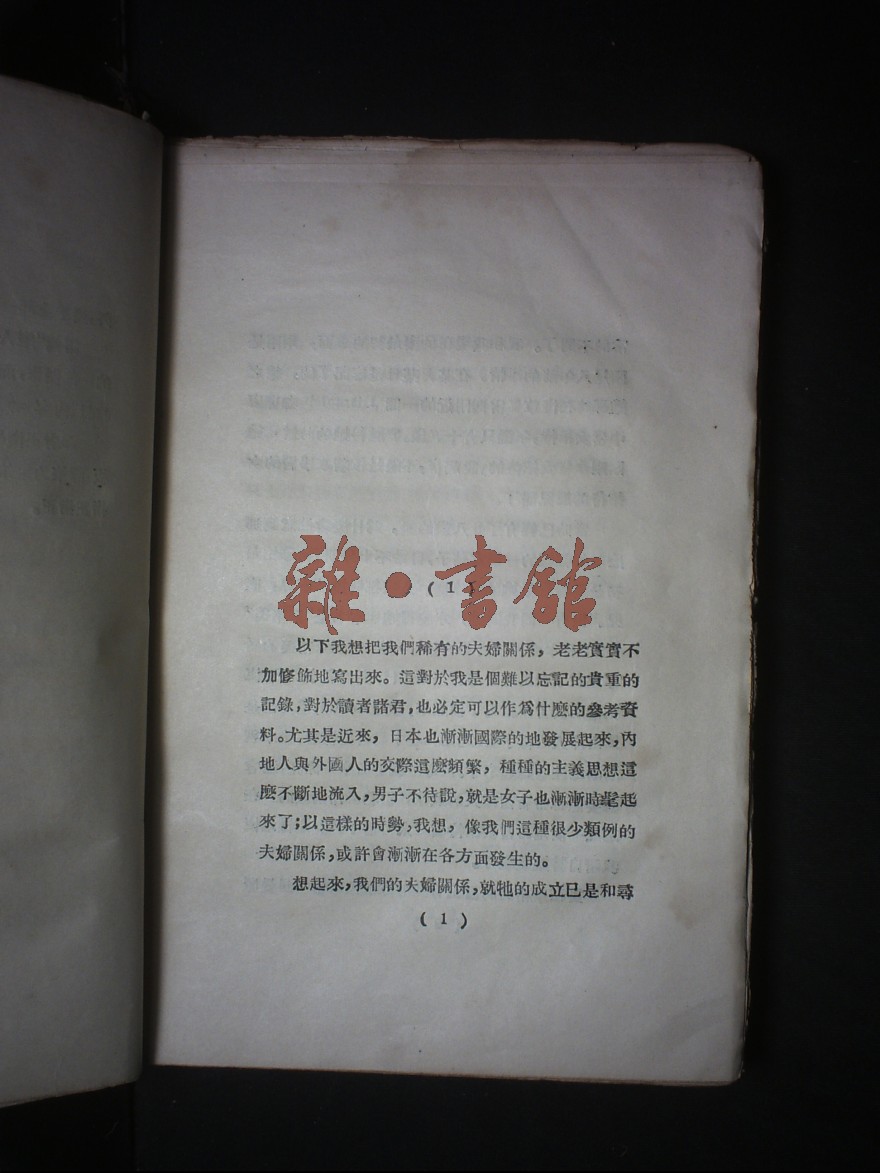 雜・書館
( 1 )
以下我想把我們稀有的夫婦關係，老老實實不
加修飾地寫出來。這對於我是個難以忘記的貴重的
記錄，對於讀者諸君，也必定可以作爲什麽的參考資
料。尤其是近來，日本也漸漸國際的地發展起來，內
地人與外國人的交際這麽頻繁，種種的主義思想這
麽不斷地流入，男子不待說，就是女子也漸漸時髦起
來了；以這樣的時勢，我想，像我們這種很少類例的
夫婦關係，或許會漸漸在各方面發生的。
想起來，我們的夫婦關係，就牠的成立已是和尋
( 1 )